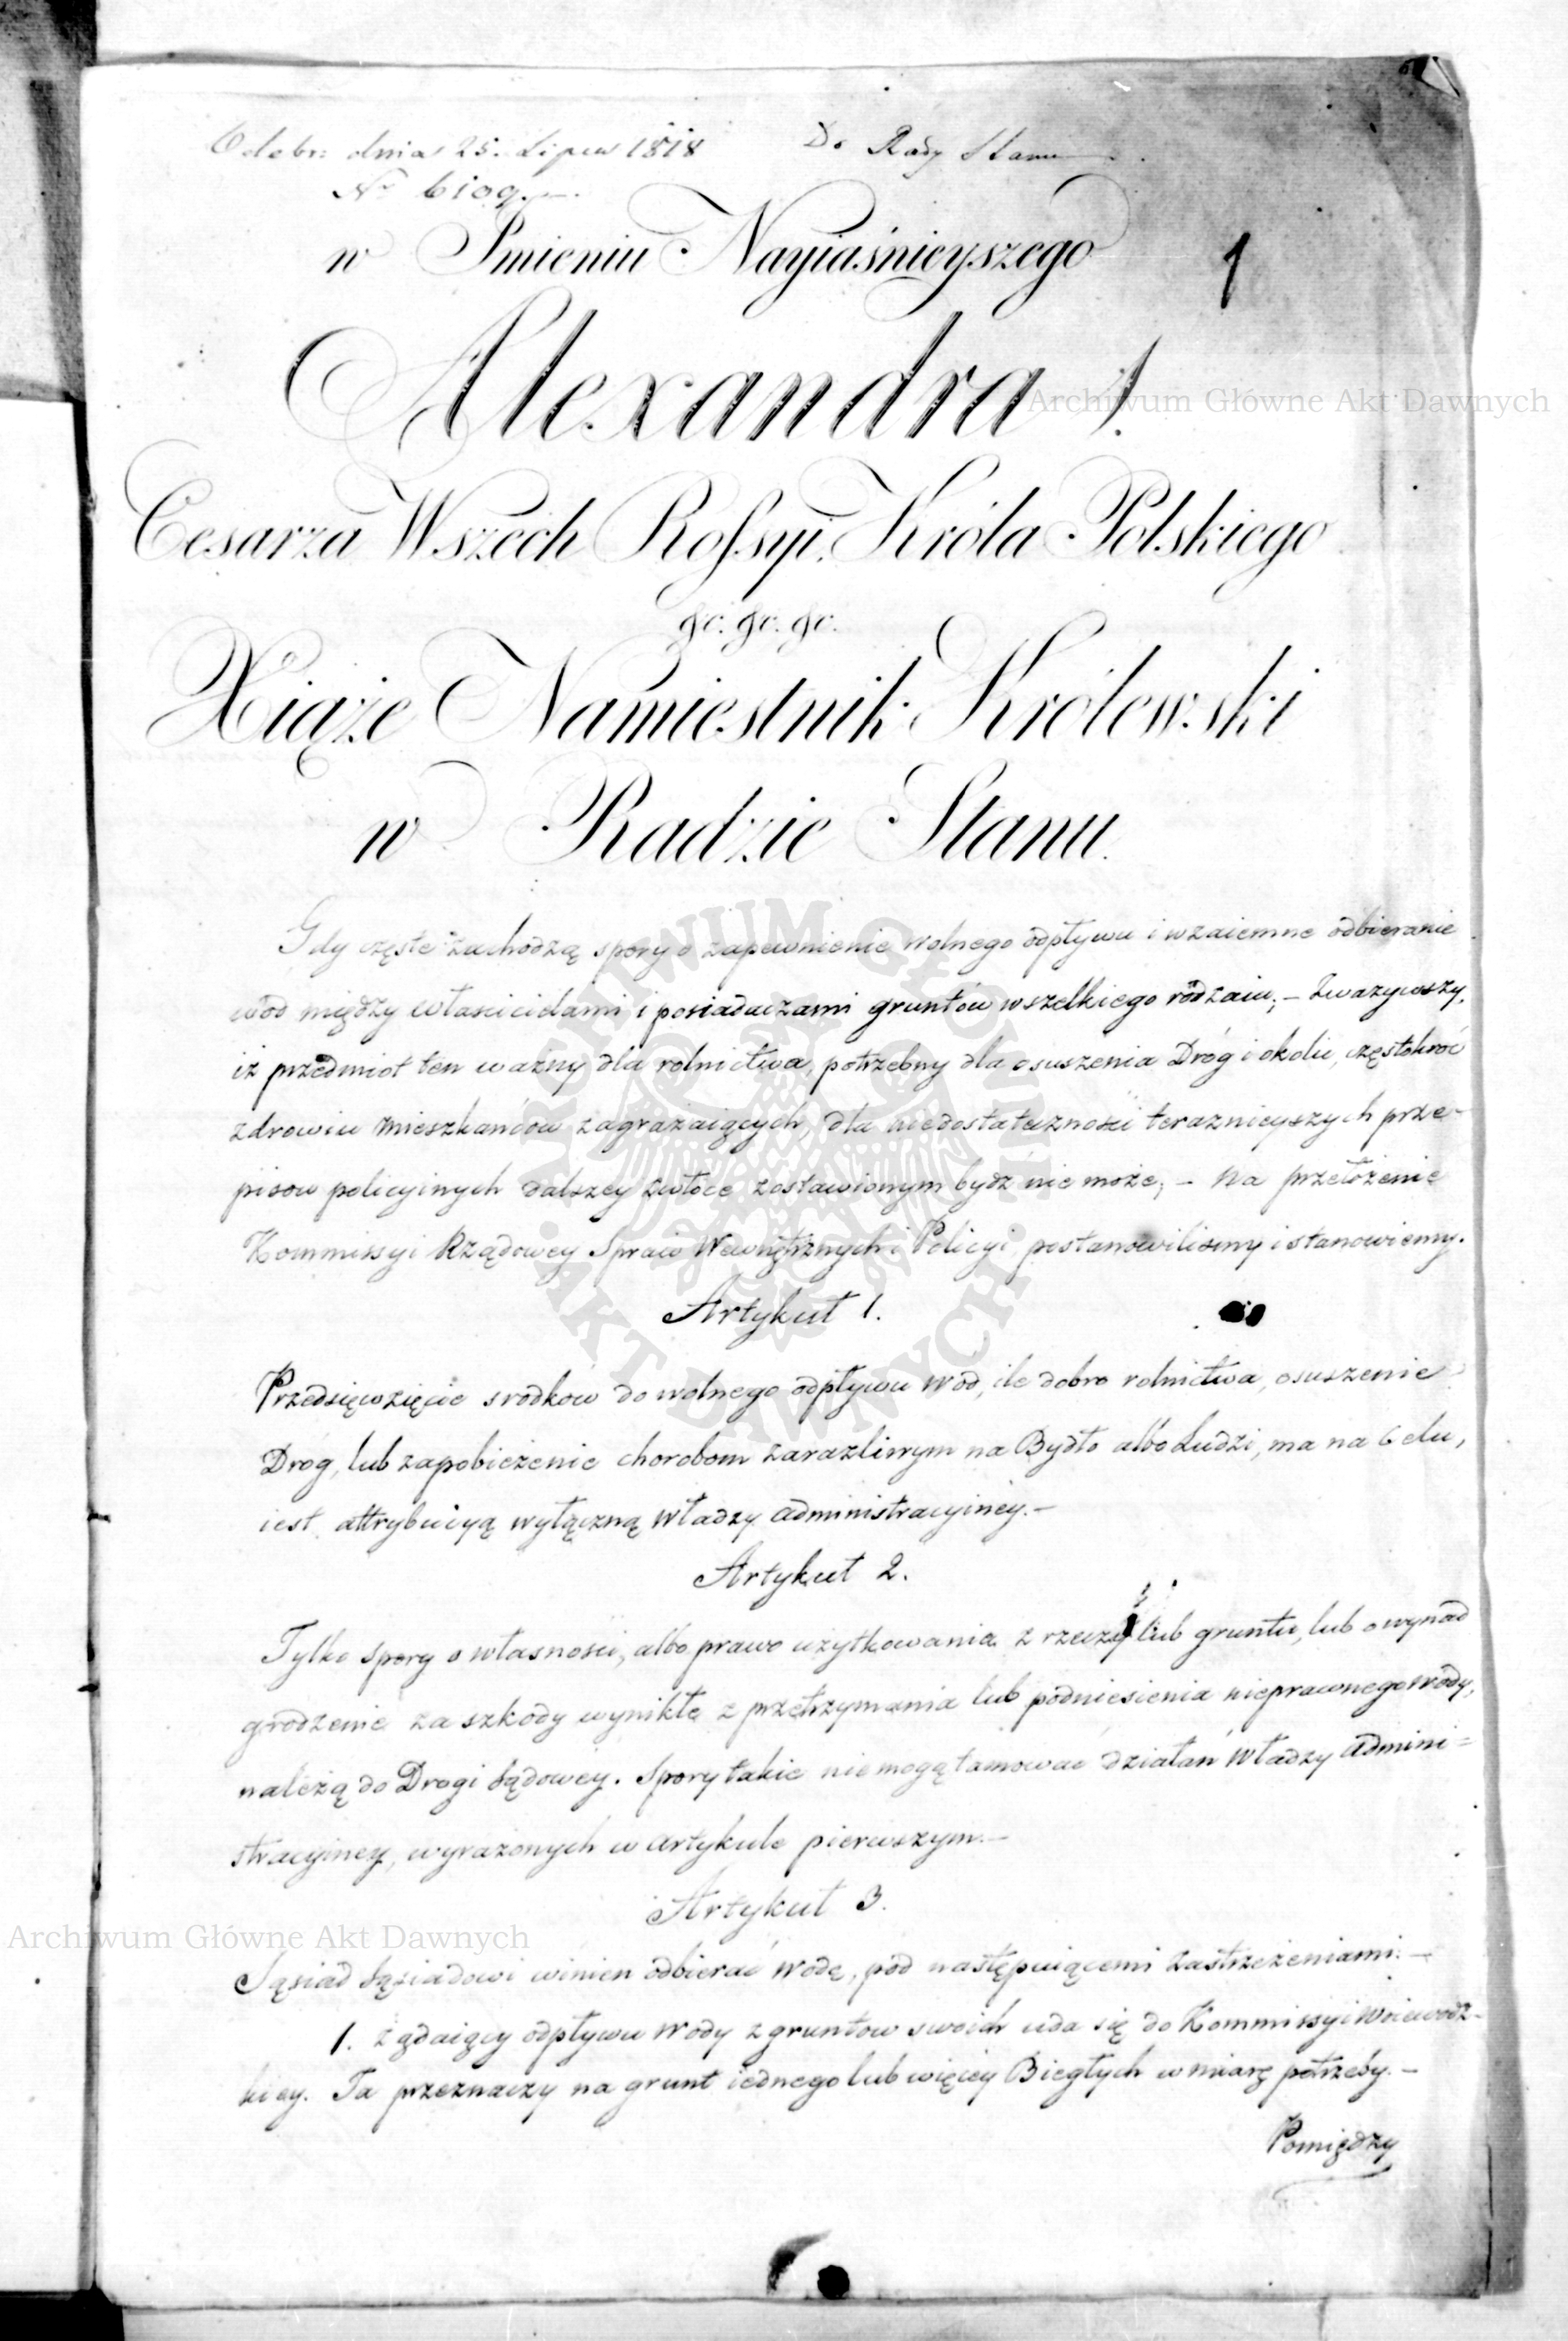 Odebr: dnia 25. Lipca 1818
Do Rady Stanu
Nº 6109.
1
w Imieniu Nayiaśnieyszego
Alexandra I.
Cesarza Wszech Rossyi, Króla Polskiego
&c. &c. &c.
Xiąże Namiestnik Królewski
w Radzie Stanu.
Gdy częste zachodzą spory o zapewnienie wolnego odpływu i wzaiemne odbieranie
wód między właścicielami i posiadaczami gruntów wszelkiego rodzaiu; – Zważywszy,
iż przedmiot ten ważny dla rolnictwa, potrzebny dla osuszenia Dróg i okolic, częstokroć
zdrowiu mieszkańców zagrażaiących, dla niedostateczności teraznieyszych prze-
pisow policyinych dalszey zwłoce zostawionym bydź nie może; – na przełożenie
Kommissyi Rządowey Spraw Wewnętrznych i Policyi, postanowilismy i stanowiemy.
Artykuł 1.
Przedsięwzięcie srodków do wolnego odpływu wód, ile dobro rolnictwa, osuszenie
Dróg, lub zapobieżenie chorobom zarazliwym na Bydło albo Ludzi, ma na Celu,
iest attrybucyą wyłączną Władzy administracyiney. –
Artykuł 2.
Tylko spory o własności, albo prawo użytkowania z rzeczy lub gruntu, lub o wynad
grodzenie za szkody wynikłe z przetrzymania lub podniesienia nieprawnego wody,
należą do Drogi Sądowey. Spory takie nie mogą tamować działań Władzy admini=
stracyiney, wyrażonych w artykule pierwszym. –
Artykuł 3.
Sąsiad Sąsiadowi winien odbierać wodę, pod następuiącemi zastrzeżeniami. –
1. żądaiący odpływu wody z gruntow swoich uda się do Kommissyi Woiewodz-
kiey. Ta przeznaczy na grunt iednego lub więcey Biegłych w miarę potrzeby. –
Pomiędzy
Archiwum Główne Akt Dawnych
Archiwum Główne Akt Dawnych
ARCHIWUM GŁÓWNE · AKT DAWNYCH ·